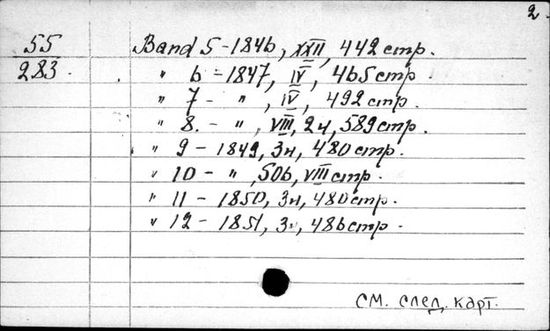 2.
55 Band 5 - 1846, XXII, 442 стр.
283. " 6 - 1847, IV, 465 стр.
" 7 - ", IV, 492 стр.
" 8. - ", VIII, 2н, 589 стр.
" 9 - 1849, 3н, 480 стр.
" 10 - ", 506, VIII стр.
" 11 - 1850, 3н, 480 стр.
" 12 - 1851, 3н, 486 стр.
см. след. карт.